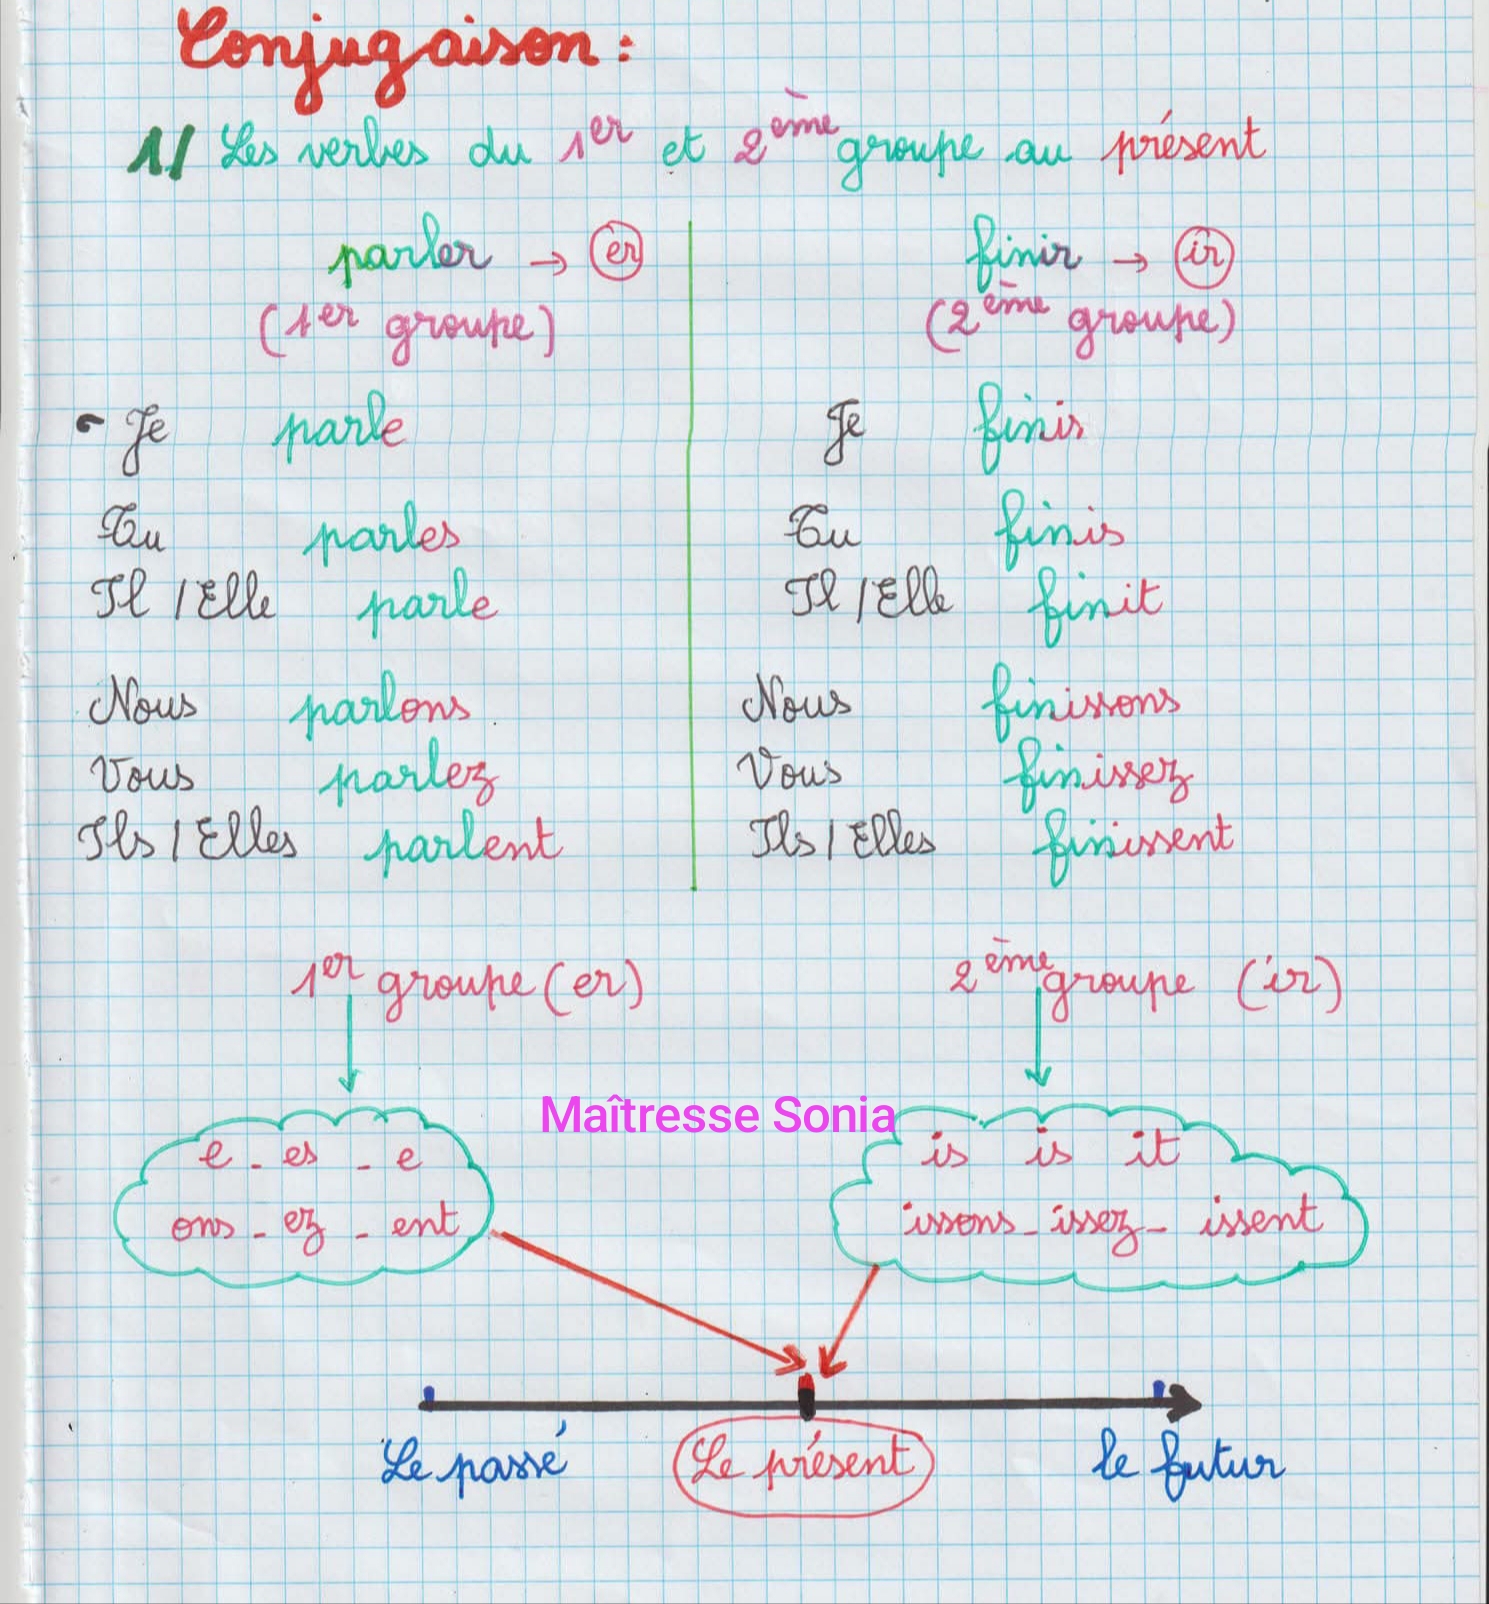 Conjugaison :
1/ Les verbes du 1er et 2ème groupe au présent
parler → er
(1er groupe)
Je parle
Tu parles
Il / Elle parle
Nous parlons
Vous parlez
Ils / Elles parlent
finir → ir
(2ème groupe)
Je finis
Tu finis
Il / Elle finit
Nous finissons
Vous finissez
Ils / Elles finissent
1er groupe (er)
2ème groupe (ir)
Maîtresse Sonia
e - es - e
ons - ez - ent
is is it
issons - issez - issent
Le passé
Le présent
le futur